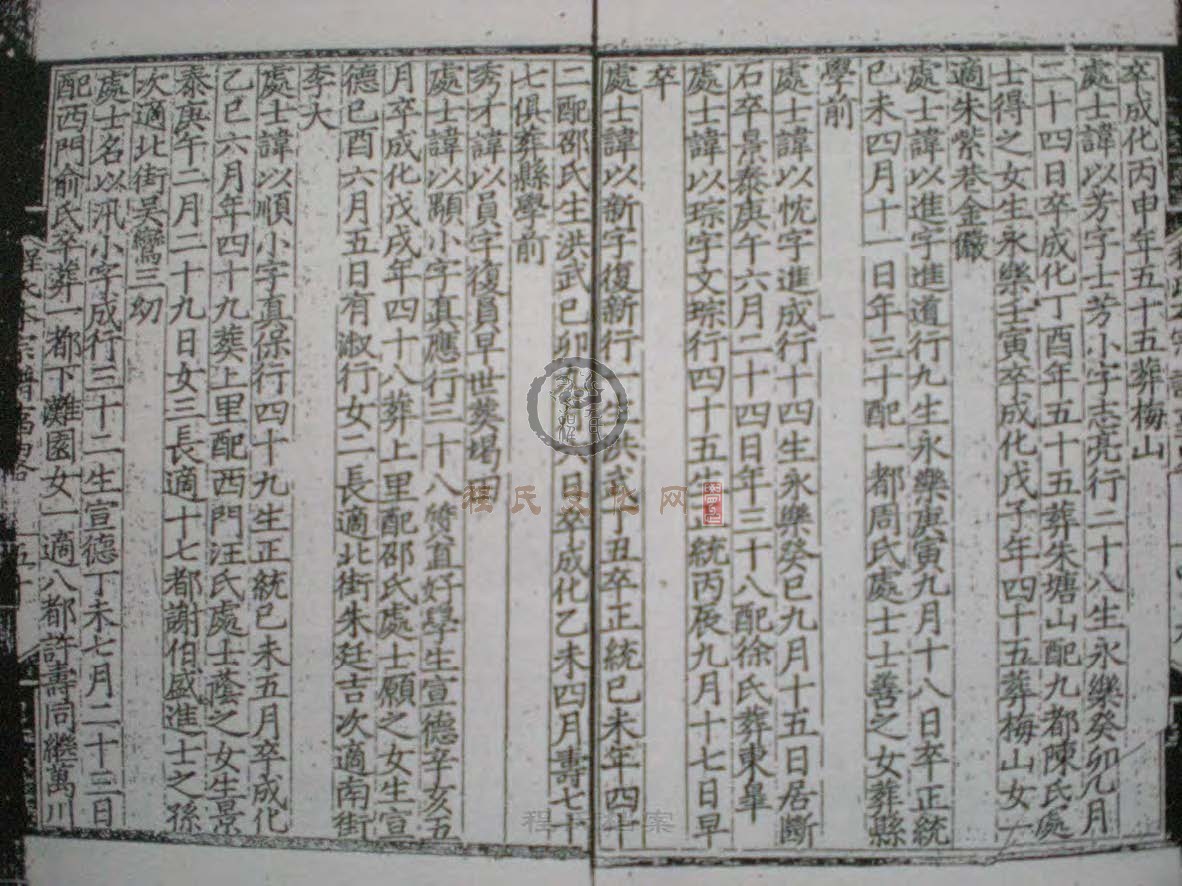 卒成化丙申年五十五葬梅山
處士諱以芳字士芳小字志亮行二十八生永樂癸卯九月
二十四日卒成化丁酉年五十五葬朱塘山配九都陳氏處
士得之女生永樂壬寅卒成化戊子年四十五葬梅山女一
適朱紫巷金巖
處士諱以進字進道行九生永樂庚寅九月十八日卒正統
己未四月十一日年三十配一都周氏處士士善之女葬縣
學前
處士諱以忱字進成行十四生永樂癸巳九月十五日居斷
石卒景泰庚午六月二十四日年三十八配徐氏葬東臯
處士諱以琮字文琮行四十五生正統丙辰九月十七日早
卒
處士諱以新字復新行一生洪武丁丑卒正統己未年四十
二配邵氏生洪武己卯八日卒成化乙未四月壽七十
七俱葬縣學前
秀才諱以員字復員早世葬塢
處士諱以顯小字真應行三十八質直好學生宣德辛亥五
月卒成化戊戌年四十八葬上里配邵氏處士願之女生宣
德己酉六月五日有淑行女二長適北街朱廷吉次適南街
李大
處士諱以順小字真保行四十九生正統己未五月卒成化
乙巳六月年四十九葬上里配西門汪氏處士蔭之女生景
泰庚午二月二十九日女三長適十七都謝伯盛進士之孫
次適北街吳鸞三幼
處士名以汛小字成行三十二生宣德丁未七月二十三日
配西門俞氏卒葬一都下灘園女一適八都許壽同繼萬川
程氏文化网